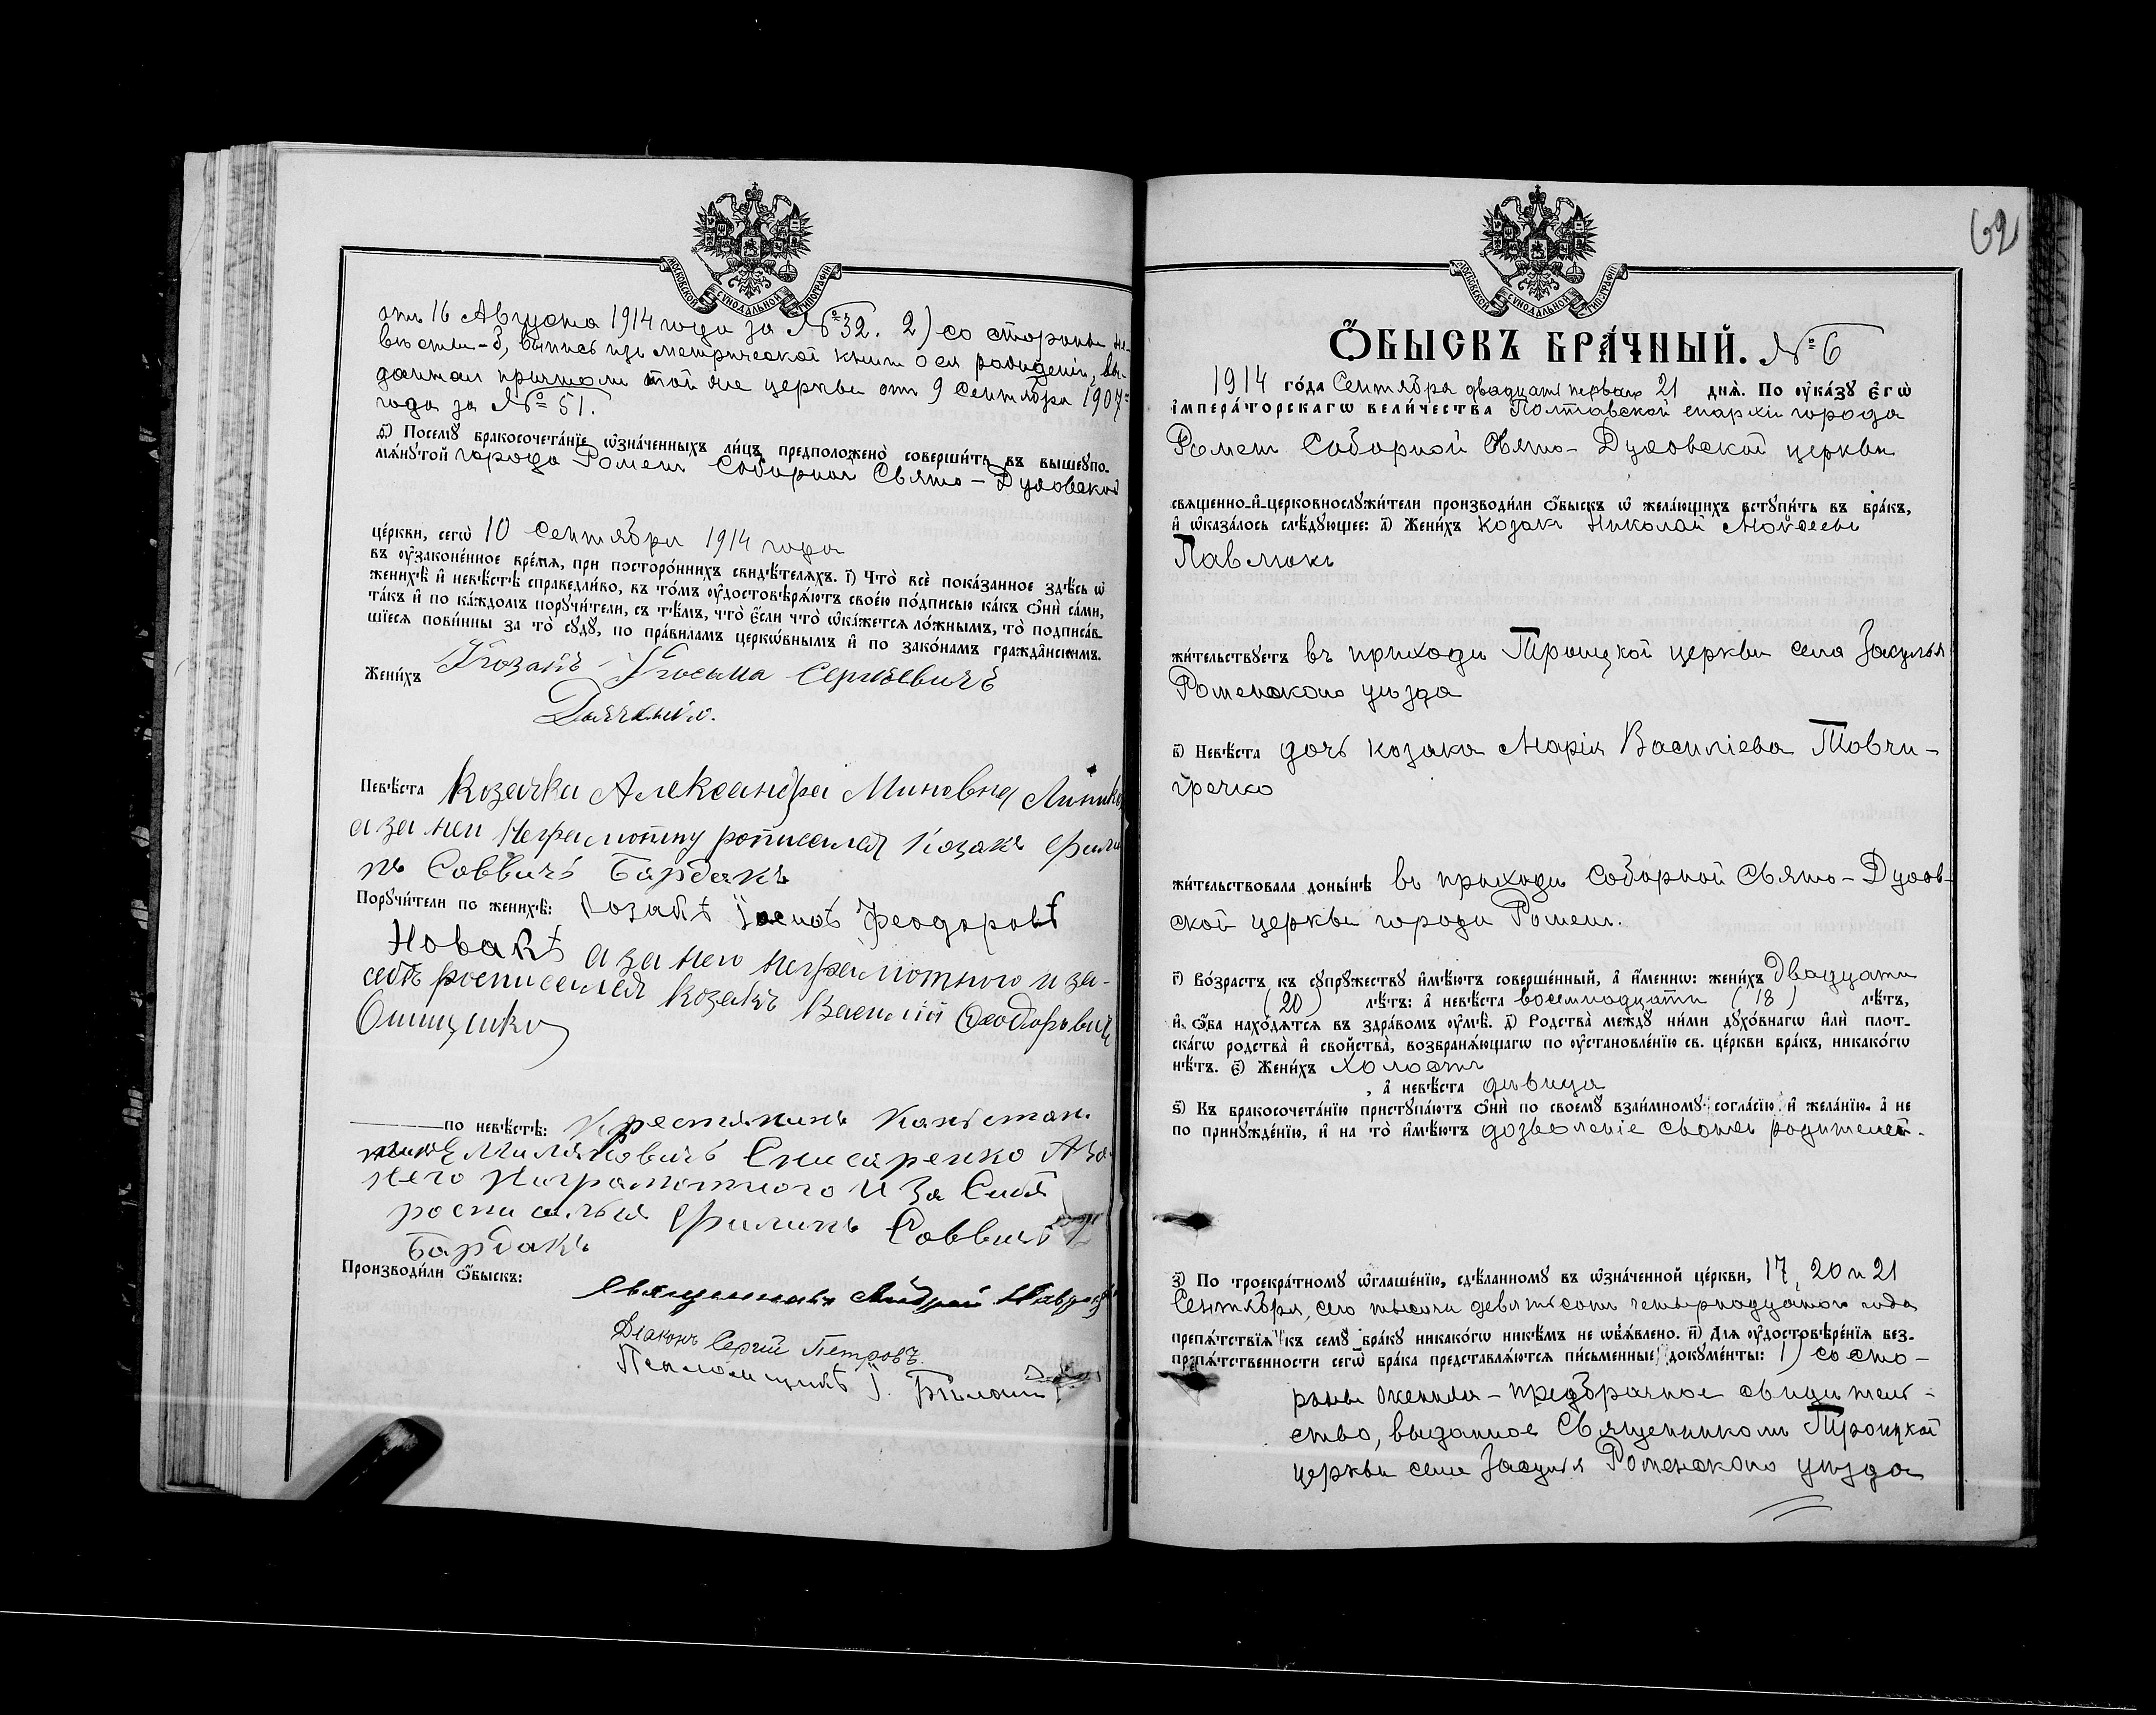 МОСКОВСКОЙ СѴНОДАЛЬНОЙ ТИПОГРАФІИ
отъ 16 Августа 1914 года за № 32. 2) со стороны не-
вѣсты-б, выпись изъ метрической книги о ея рожденіи, вы-
данная причтомъ той же церкви отъ 9 Сентября 1907
года за № 51.
Посемꙋ бракосочета́нїе ѡ҆зна́ченныхъ ли́цъ предположено̀ соверши́ть въ вышеупо-
мѧ́нꙋтой города Роменъ Соборной Свято-Духовской
це́ркви, сегѡ̀ 10 Сентября 1914 года
въ ᲂу҆зако́ненное вре́мѧ, при посторо́ннихъ свидѣ́телѧхъ. г҃) Что̀ всѐ пока́занное здѣ́сь ѡ҆
женихѣ̀ и҆ невѣ́стѣ справедли́во, въ то́мъ ᲂу҆достовѣрѧ́ютъ свое́ю по́дписью ка́къ ѻ҆нѝ са́ми,
та́къ и҆ по ка́ждомъ порꙋчи́тели, съ тѣ́мъ, что̀ є҆́сли что̀ ѡ҆ка́жетсѧ ло́жнымъ, то̀ подписа́в-
шїесѧ пови́нны за то̀ сꙋдꙋ̀, по пра́виламъ церкѡ́внымъ и҆ по зако́намъ гражда́нскимъ.
Жени́хъ Козакъ Косьма Сергѣевичъ
Невѣ́ста Козачка Александра Миновна
а за неи неграмотну росписался Козакъ Фили
пъ Саввичъ Бардакъ
Порꙋчи́тели по женихѣ̀: Козакъ Іосифъ Феодоровъ
Новакъ а за него неграмотного и за-
себѣ росписался Козакъ Василій Феодоровичъ
Онищенко
по невѣ́стѣ: Крестянинъ Констан
тинъ Снисаренко А за
него неграмотного И За Себя
росписалься Филипъ Саввичъ
Бардакъ
Производи́ли ѻ҆́быскъ:
Священникъ Андрей
Діаконъ Сергій Петровъ
Псаломщикъ І.
62
МОСКОВСКОЙ СѴНОДАЛЬНОЙ ТИПОГРАФІИ
Ѻ҆́БЫСКЪ БРА́ЧНЫЙ. № 6
1914 го́да Сентября двадцать перваго 21 днѧ̀. По ᲂу҆ка́зꙋ є҆гѡ̀
і҆мпера́торскагѡ вели́чества Полтавской епархіи города
Роменъ Соборной Свято-Духовской церкви
свѧщенно-и҆-церковнослꙋжи́тели производи́ли ѻ҆́быскъ ѡ҆ жела́ющихъ встꙋпи́ть въ бра́къ,
и҆ ѡ҆каза́лось слѣ́дꙋющее: а҃) Жени́хъ козакъ Николай Моѵсеевъ
Павлюкъ
жи́тельствꙋетъ въ приходѣ Троицкой церкви села Засулья
Роменскаго уѣзда
в҃) Невѣ́ста дочь козака Марія Василіева Товчи-
гречко
жи́тельствовала доны́нѣ въ приходѣ Соборной Свято-Духов-
ской церкви города Роменъ.
г҃) Во́зрастъ къ сꙋпрꙋ́жествꙋ и҆мѣ́ютъ соверше́нный, а҆ и҆́меннѡ: жени́хъ двадцати
(20) лѣ́тъ: а҆ невѣ́ста восемнадцати (18) лѣ́тъ,
и҆ ѻ҆́ба нахо́дѧтсѧ въ здра́вомъ ᲂу҆мѣ̀. д҃) Родства̀ междꙋ̀ ни́ми дꙋхо́внагѡ и҆лѝ плот-
ска́гѡ родства̀ и҆ свойства̀, возбранѧ́ющагѡ по ᲂу҆становле́нїю св. це́ркви бра́къ, никако́гѡ
нѣ́тъ. є҃) Жени́хъ холостъ
, а҆ невѣ́ста дѣвица
ѕ҃) Къ бракосочета́нїю пристꙋпа́ютъ ѻ҆нѝ по своемꙋ̀ взаи́мномꙋ согла́сїю и҆ жела́нїю. а҆ не
по принꙋжде́нїю, и҆ на то̀ и҆мѣ́ютъ дозволеніе своихъ родителей.
з҃) По троекра́тномꙋ ѡ҆глаше́нїю, сдѣ́ланномꙋ въ ѡ҆зна́ченной це́ркви, 17, 20 и 21
Сентября, сего тысяча девятьсотъ четырнадцатого года
препѧ́тствїѧ къ семꙋ̀ бра́кꙋ никако́гѡ никѣ́мъ не ѡ҆б̾ѧ́влено. и҃) Длѧ ᲂу҆достовѣре́нїѧ без-
препѧ́тственности сегѡ̀ бра́ка представлѧ́ютсѧ пи́сьменные докꙋме́нты: 1) со сто-
роны жениха - предбрачное свидѣтель-
ство, выданное Священникомъ Троицкой
церкви села Засулья Роменскаго уѣзда